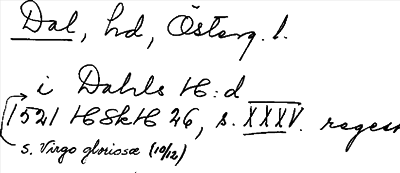 Dal, hd, Österg. l.
i Dahls H:d
1521 HSkH 26, s. XXXV. regest
s. Virgo gloriosa (10/12)